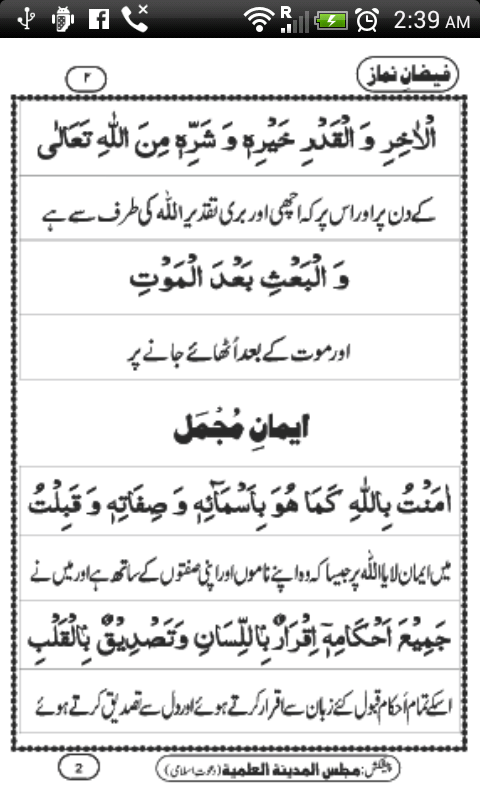 R 2:39 AM
فیضانِ نماز ۲
الْاٰخِرِ وَ الْقَدْرِ خَيْرِهٖ وَ شَرِّهٖ مِنَ اللّٰهِ تَعَالٰى
کے دن پر اور اس پر کہ اچھی اور بری تقدیر اللّٰہ کی طرف سے ہے
وَ الْبَعْثِ بَعْدَ الْمَوْتِ
اور موت کے بعد اُٹھائے جانے پر
ایمانِ مُجْمَل
اٰمَنْتُ بِاللّٰهِ كَمَا هُوَ بِاَسْمَآئِهٖ وَ صِفَاتِهٖ وَ قَبِلْتُ
میں ایمان لایا اللّٰہ پر جیسا کہ وہ اپنے ناموں اور اپنی صفتوں کے ساتھ ہے اور میں نے
جَمِيْعَ اَحْكَامِهٖٓ اِقْرَارٌۢ بِاللِّسَانِ وَتَصْدِيْقٌۢ بِالْقَلْبِ
اسکے تمام اَحکام قبول کئے زبان سے اقرار کرتے ہوئے اور دل سے تصدیق کرتے ہوئے
پیشکش: مجلس المدینة العلمیة (دعوت اسلامی) 2